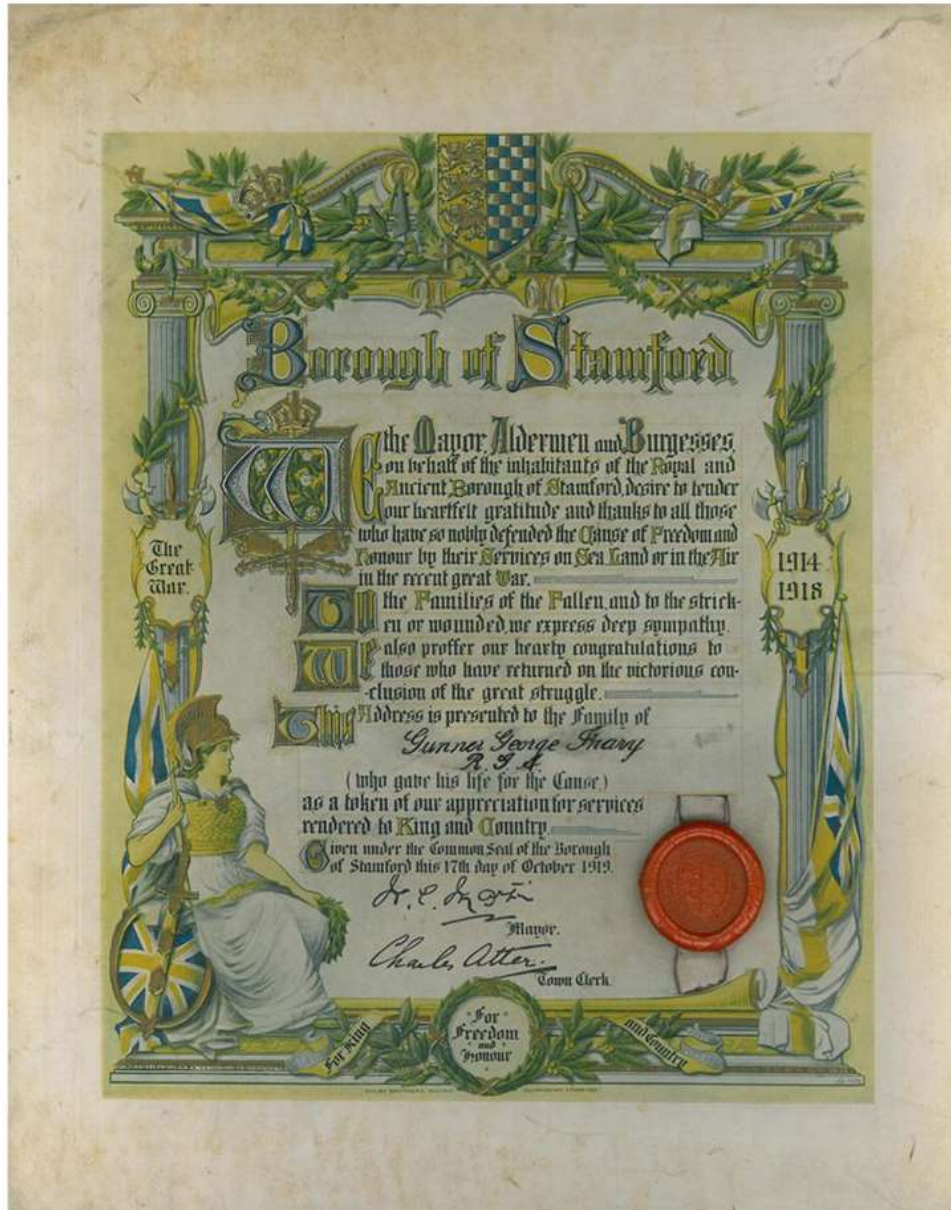 Borough of Stamford
WE the Mayor, Aldermen and Burgesses,
on behalf of the inhabitants of the Royal and
Ancient Borough of Stamford, desire to tender
our heartfelt gratitude and thanks to all those
who have so nobly defended the Cause of Freedom and
Honour by their Services on Sea Land or in the Air
in the recent great War.
To the Families of the Fallen, and to the strick-
en or wounded, we express deep sympathy.
We also proffer our hearty congratulations to
those who have returned on the victorious con-
-clusion of the great struggle.
This Address is presented to the Family of
Gunner George
R. G. A.
(who gave his life for the Cause)
as a token of our appreciation for services
rendered to King and Country.
Given under the Common Seal of the Borough
of Stamford this 17th day of October 1919.
Mayor.
Charles Atter.
Town Clerk.
The
Great
War.
1914
1918
For King
For
Freedom
and
Honour
and Country